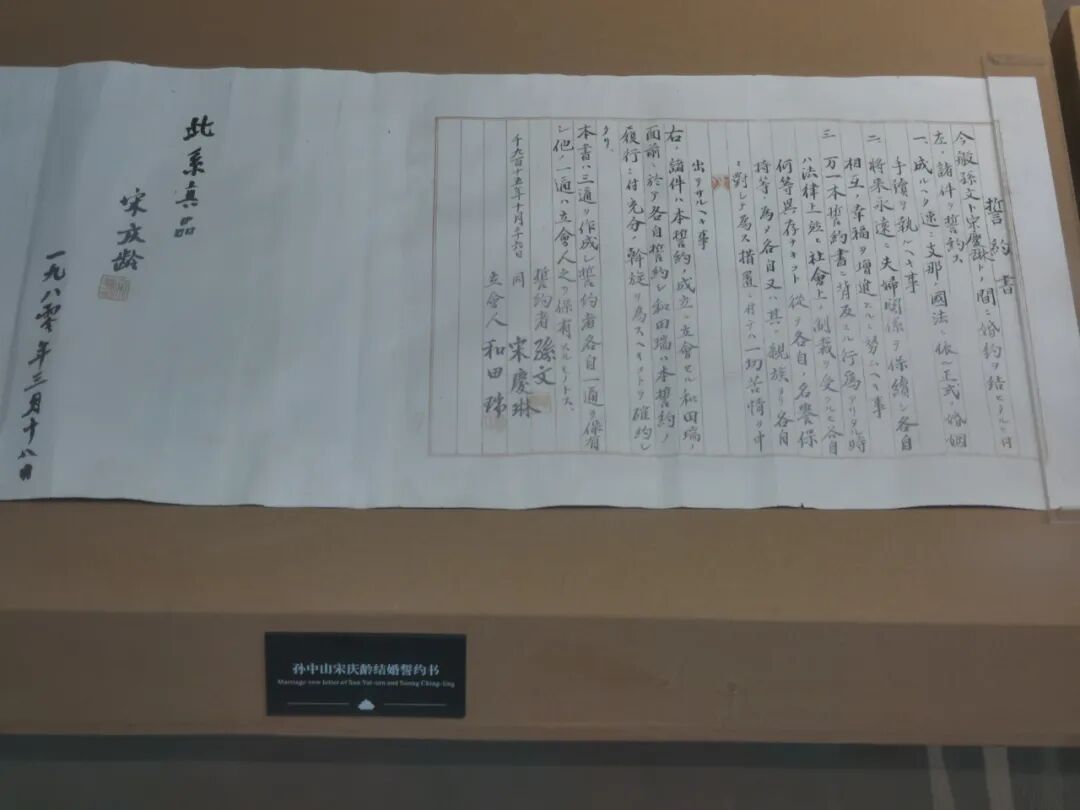 誓約書
今般孫文ト宋慶琳トノ間ニ婚約ヲ結ヒタルニ付
左ノ諸件ヲ誓約ス
一、成ルヘク速ニ支那ノ國法ニ依ル正式ノ婚姻
手續ヲ執ルヘキ事
二、將来永遠ニ夫婦関係ヲ保続シ各自
相互ノ幸福ヲ増進スルニ努ムヘキ事
三、万一本誓約書ニ背反スル行為アリタル時
ハ法律上並ニ社會上ノ制裁ヲ受クルモ各自
何等異存ナキコト従テ各自ノ名譽保
持等ノ為メ各自又ハ其ノ親族ヨリ各自
ニ對シテ為ス措置ニ付テハ一切苦情ヲ申
出テサルヘキ事
右ノ諸件ハ本誓約ノ成立ニ立會セル和田瑞ノ
面前ニ於テ各自誓約シ和田瑞ハ本誓約ノ
履行ニ付充分ノ斡旋ヲ為スヘキコトヲ確約シ
タリ、
本書ハ三通ヲ作成シ誓約者各自一通ヲ保有
シ他ノ一通ハ立會人之ヲ保有スルモノトス、
千九百十五年十月二十六日
誓約者 孫文
同 宋慶琳
立會人 和田瑞
此系真品
宋庆龄
一九八零年三月十八日
孙中山宋庆龄结婚誓约书
Marriage vow letter of Sun Yat-sen and Soong Ching-ling